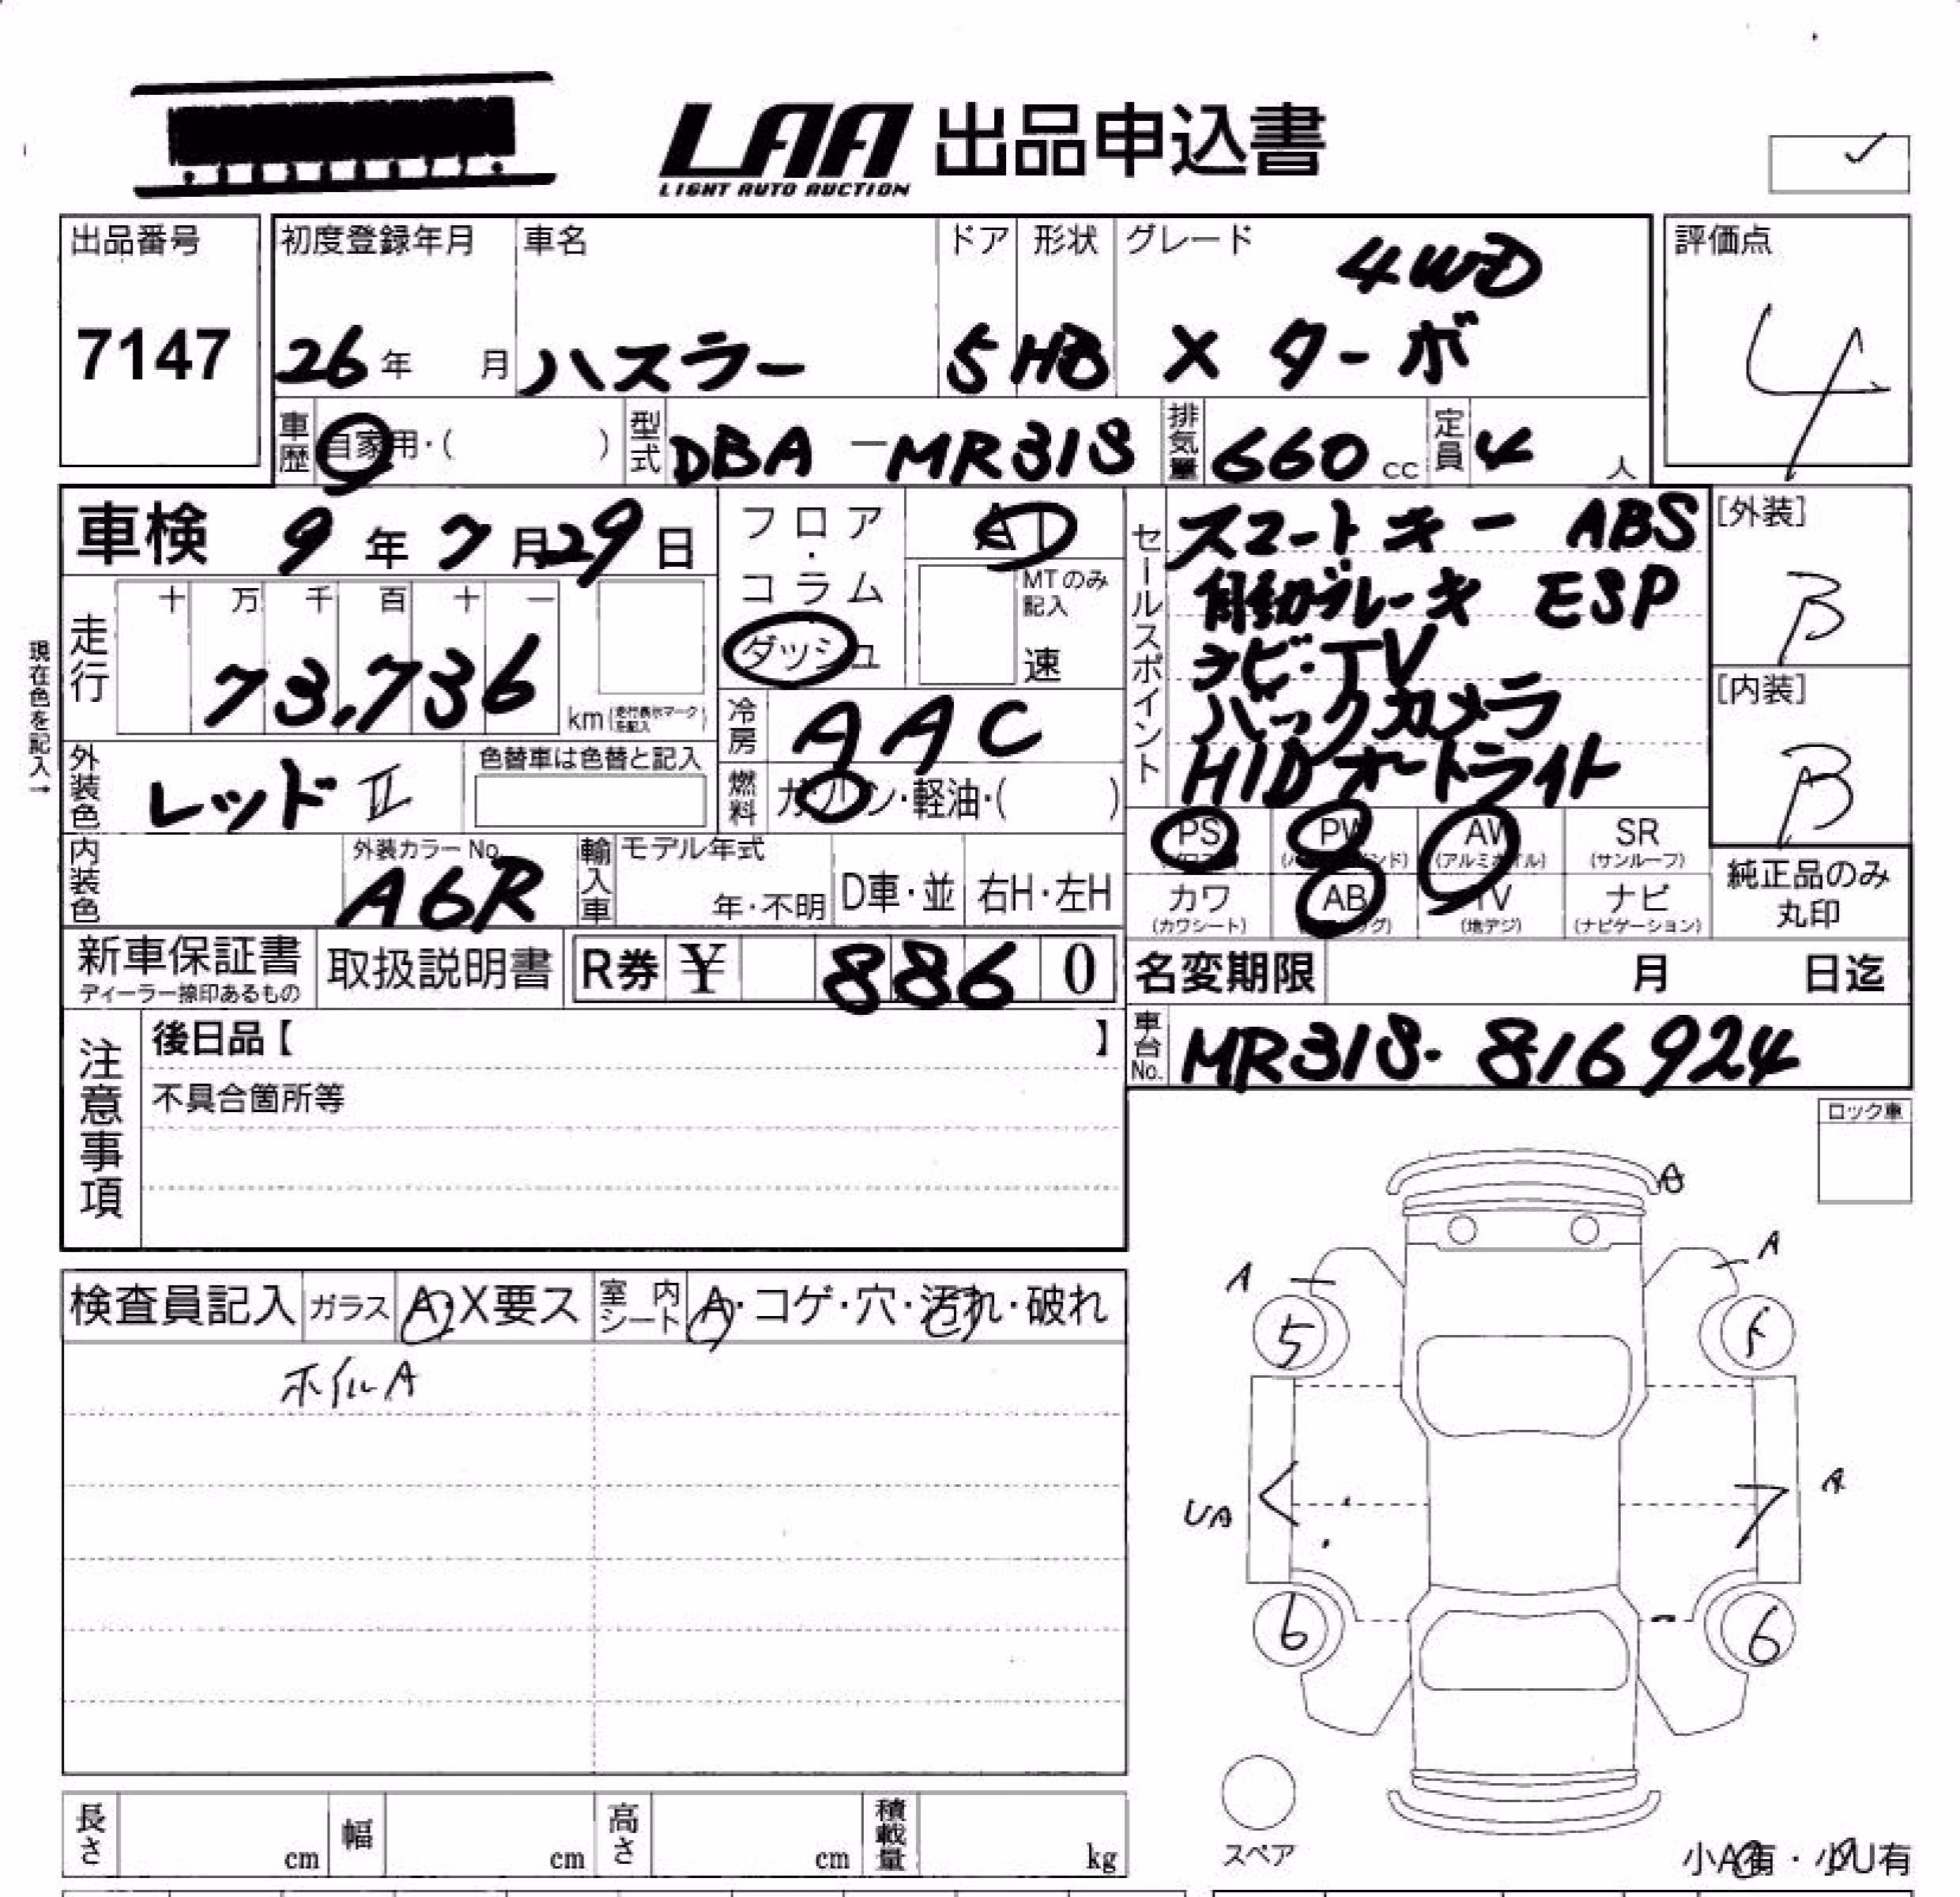 LAA 出品申込書
LIGHT AUTO AUCTION
出品番号
7147
初度登録年月
26年 月
車名
ハスラー
ドア
5
形状
HB
グレード
4WD
X ターボ
評価点
4
車歴 自家用・( )
型式 DBA-MR31S
排気量 660 cc
定員 4 人
車検 9年7月29日
フロア・コラム
ダッシュ
AT
MTのみ記入
速
セールスポイント
スマートキー ABS
自動ブレーキ ESP
ナビ・TV
バックカメラ
HID オートライト
[外装]
B
[内装]
B
現在色を記入→
走行
十 万 千 百 十 一
73,736
km(走行表示マークを記入)
冷房 AAC
燃料 ガソリン・軽油・( )
外装色 レッドII
色替車は色替と記入
内装色
外装カラーNo.
A6R
輸入車
モデル年式
年・不明
D車・並
右H・左H
PS
PW
AW
(アルミホイル)
SR
(サンルーフ)
カワ
(カワシート)
AB
TV
(地デジ)
ナビ
(ナビゲーション)
純正品のみ
丸印
新車保証書
ディーラー捺印あるもの
取扱説明書
R券 ¥ 886 0
名変期限 月 日迄
車台No. MR31S-816924
注意事項
後日品【 】
不具合箇所等
ロック車
検査員記入
ガラス A・X要ス
室内シート A・コゲ・穴・汚れ・破れ
ホイルA
A
A
A
5
5
UA
A
6
6
スペア
長さ cm
幅 cm
高さ cm
積載量 kg
小A有・小U有